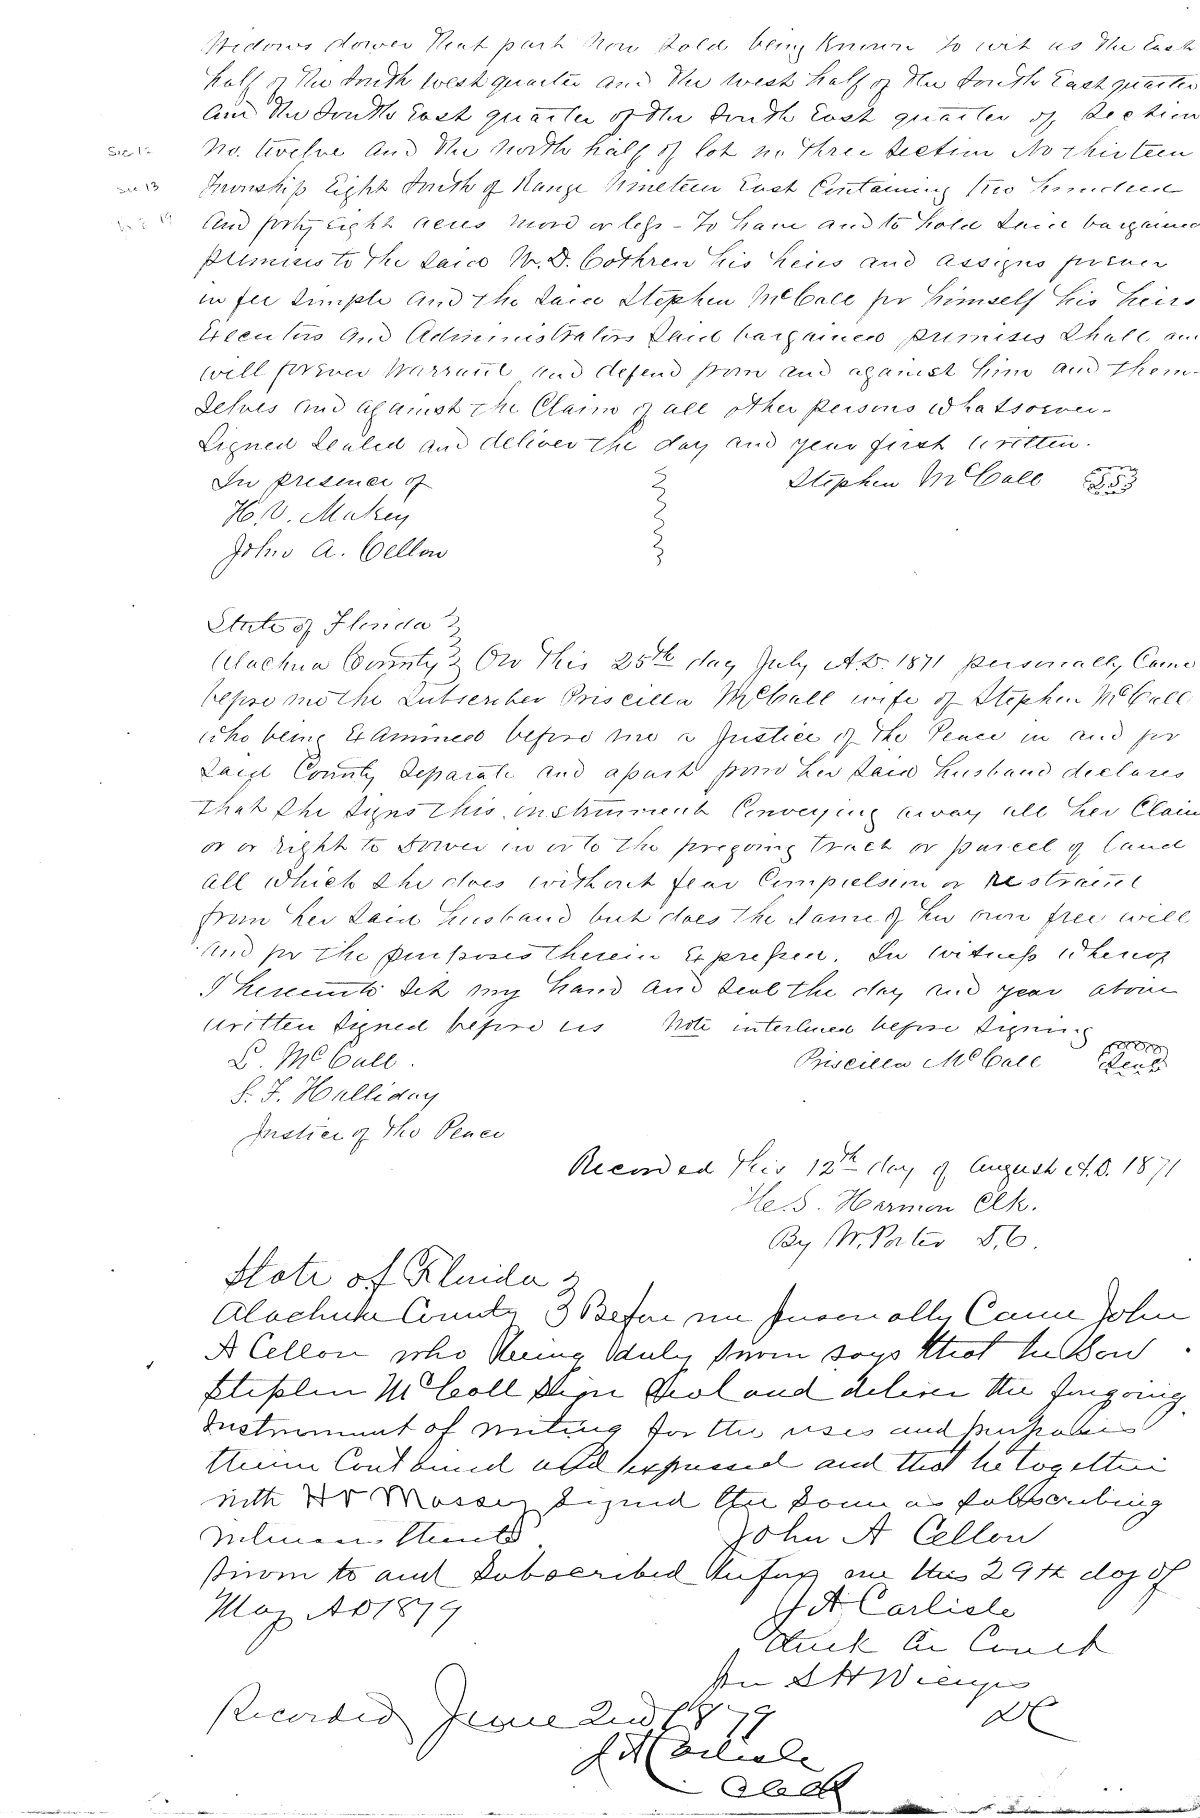 Widows dower that part now sold being Known to wit as the East
half of the South west quarter and the west half of the South East quarter
and the South East quarter of the South East quarter of Section
Sec 12
No. twelve and the North half of lot no three Section No thirteen
Sec 13
Township Eight South of Range Nineteen East Containing two hundred
and forty Eight acres more or less - To have and to hold Said bargained
premises to the Said W. D. Cothren his heirs and assigns forever
in fee Simple and the Said Stephen McCall for himself his heirs
Executors and Administrators Said bargained premises Shall and
will forever Warrant and defend from and against him and them-
Selves and against the Claim of all other persons whatsoever-
Signed Sealed and deliver the day and year first written.
In presence of Stephen McCall
H. V.
John A. Cellon
State of Florida
Alachua County On this 25th day July A.D. 1871 personally Came
before me the Subscriber Priscilla McCall wife of Stephen McCall
who being Examined before me a Justice of the Peace in and for
Said County Separate and apart from her Said husband declares
that She Signs this instrument Conveying away all her Claim
or or right to Dower in or to the foregoing tract or parcel of land
all which She does without fear Compulsion or restraint
from her Said husband but does the Same of her own free will
and for the purposes therein Expressed. In witness whereof
I hereunto Set my hand and Seal the day and year above
written Signed before us Note interlined before Signing
L. McCall. Priscilla McCall Seal
S. F. Halliday
Justice of the Peace
Recorded this 12th day of August A.D. 1871
H. S. Harmon Clk.
By W. Porter D.C.
State of Florida
Alachua County Before me personally Came John
A Cellon who being duly sworn says that he Saw
Stephen McCall Sign Seal and deliver the foregoing
Instrument of writing for the uses and purposes
therein Contained and expressed and that he together
with H V Massey Signed the Same as Subscribing
witnesses thereto. John A Cellon
Sworn to and Subscribed before me this 29th day of
May AD 1879 J A Carlisle
Clerk Cir Court
per S H Wienges
DC
Recorded June 2nd 1879
J A Carlisle
Clerk